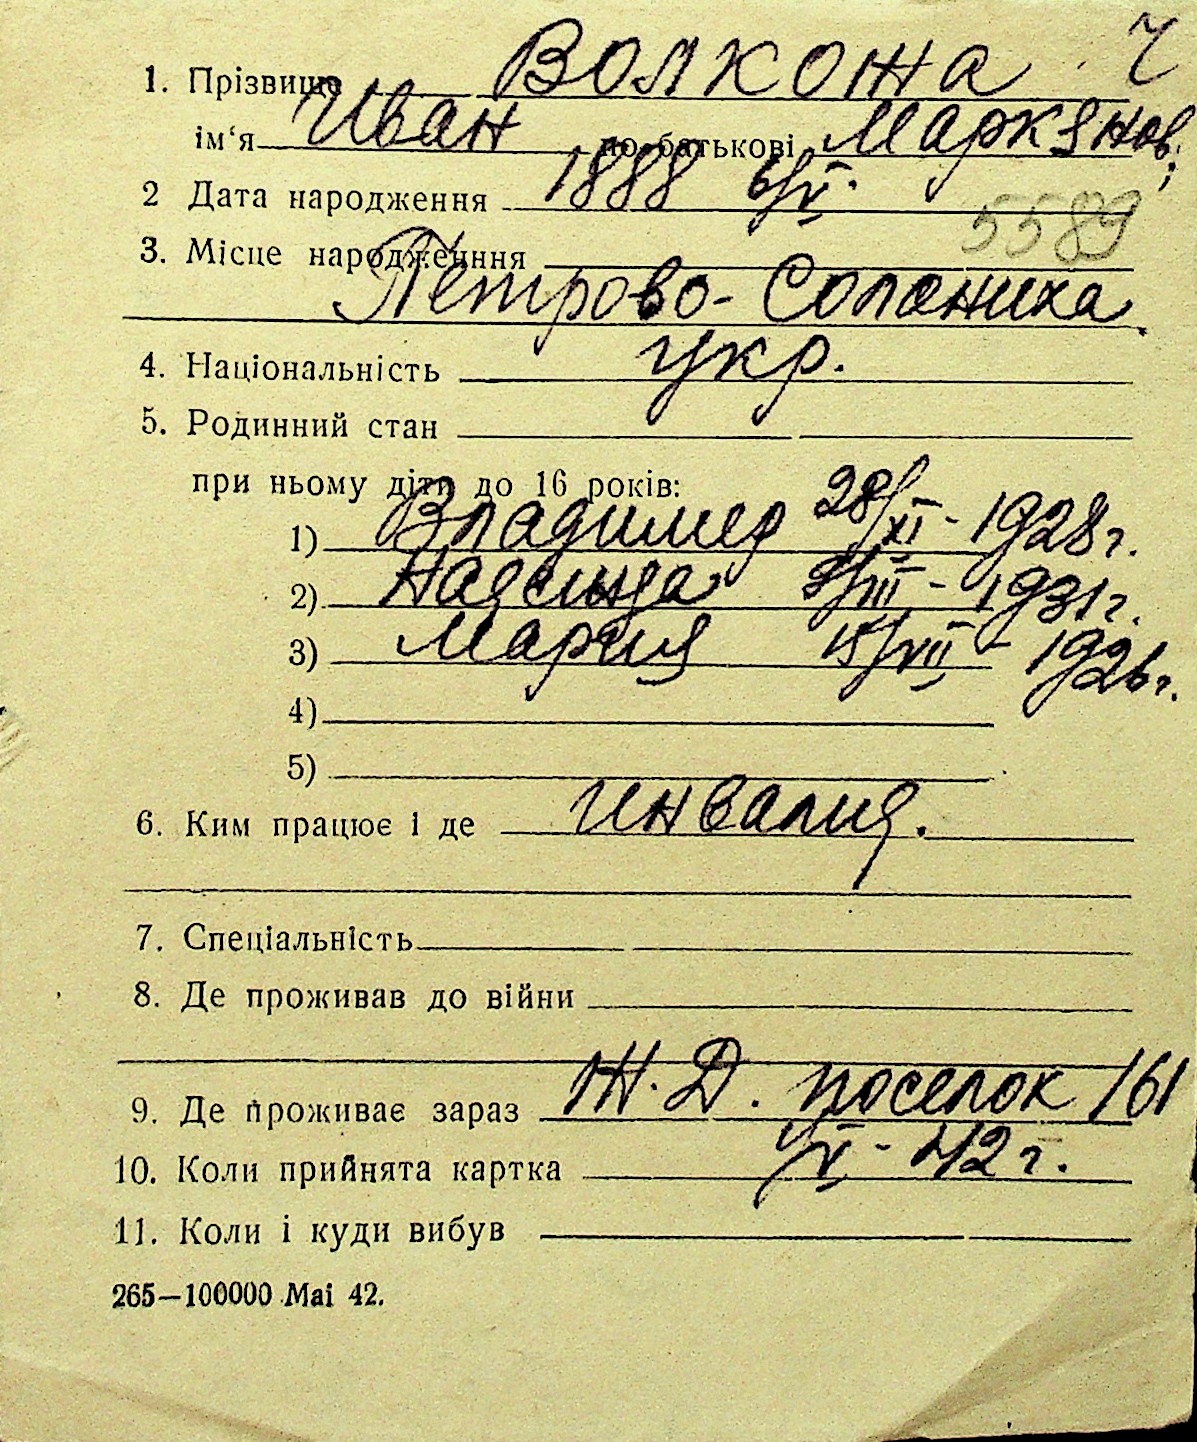 1. Прізвище Волкожа Ч
ім‘я Иван по-батькові Маркянов.
2 Дата народження 1888 6/V.
5589
3. Місце народження
Петрово-Солониха
4. Національність укр.
5. Родинний стан
при ньому діти до 16 років:
1) Владимер 28/XI - 1928 г.
2) 8/III - 1931 г.
3) Мария 15/VII - 1926 г.
4)
5)
6. Ким працює і де инвалид.
7. Спеціальність
8. Де проживав до війни
9. Де проживає зараз Ж. Д. поселок 161
10. Коли прийнята картка - 42 г.
11. Коли і куди вибув
265—100000 Маі 42.